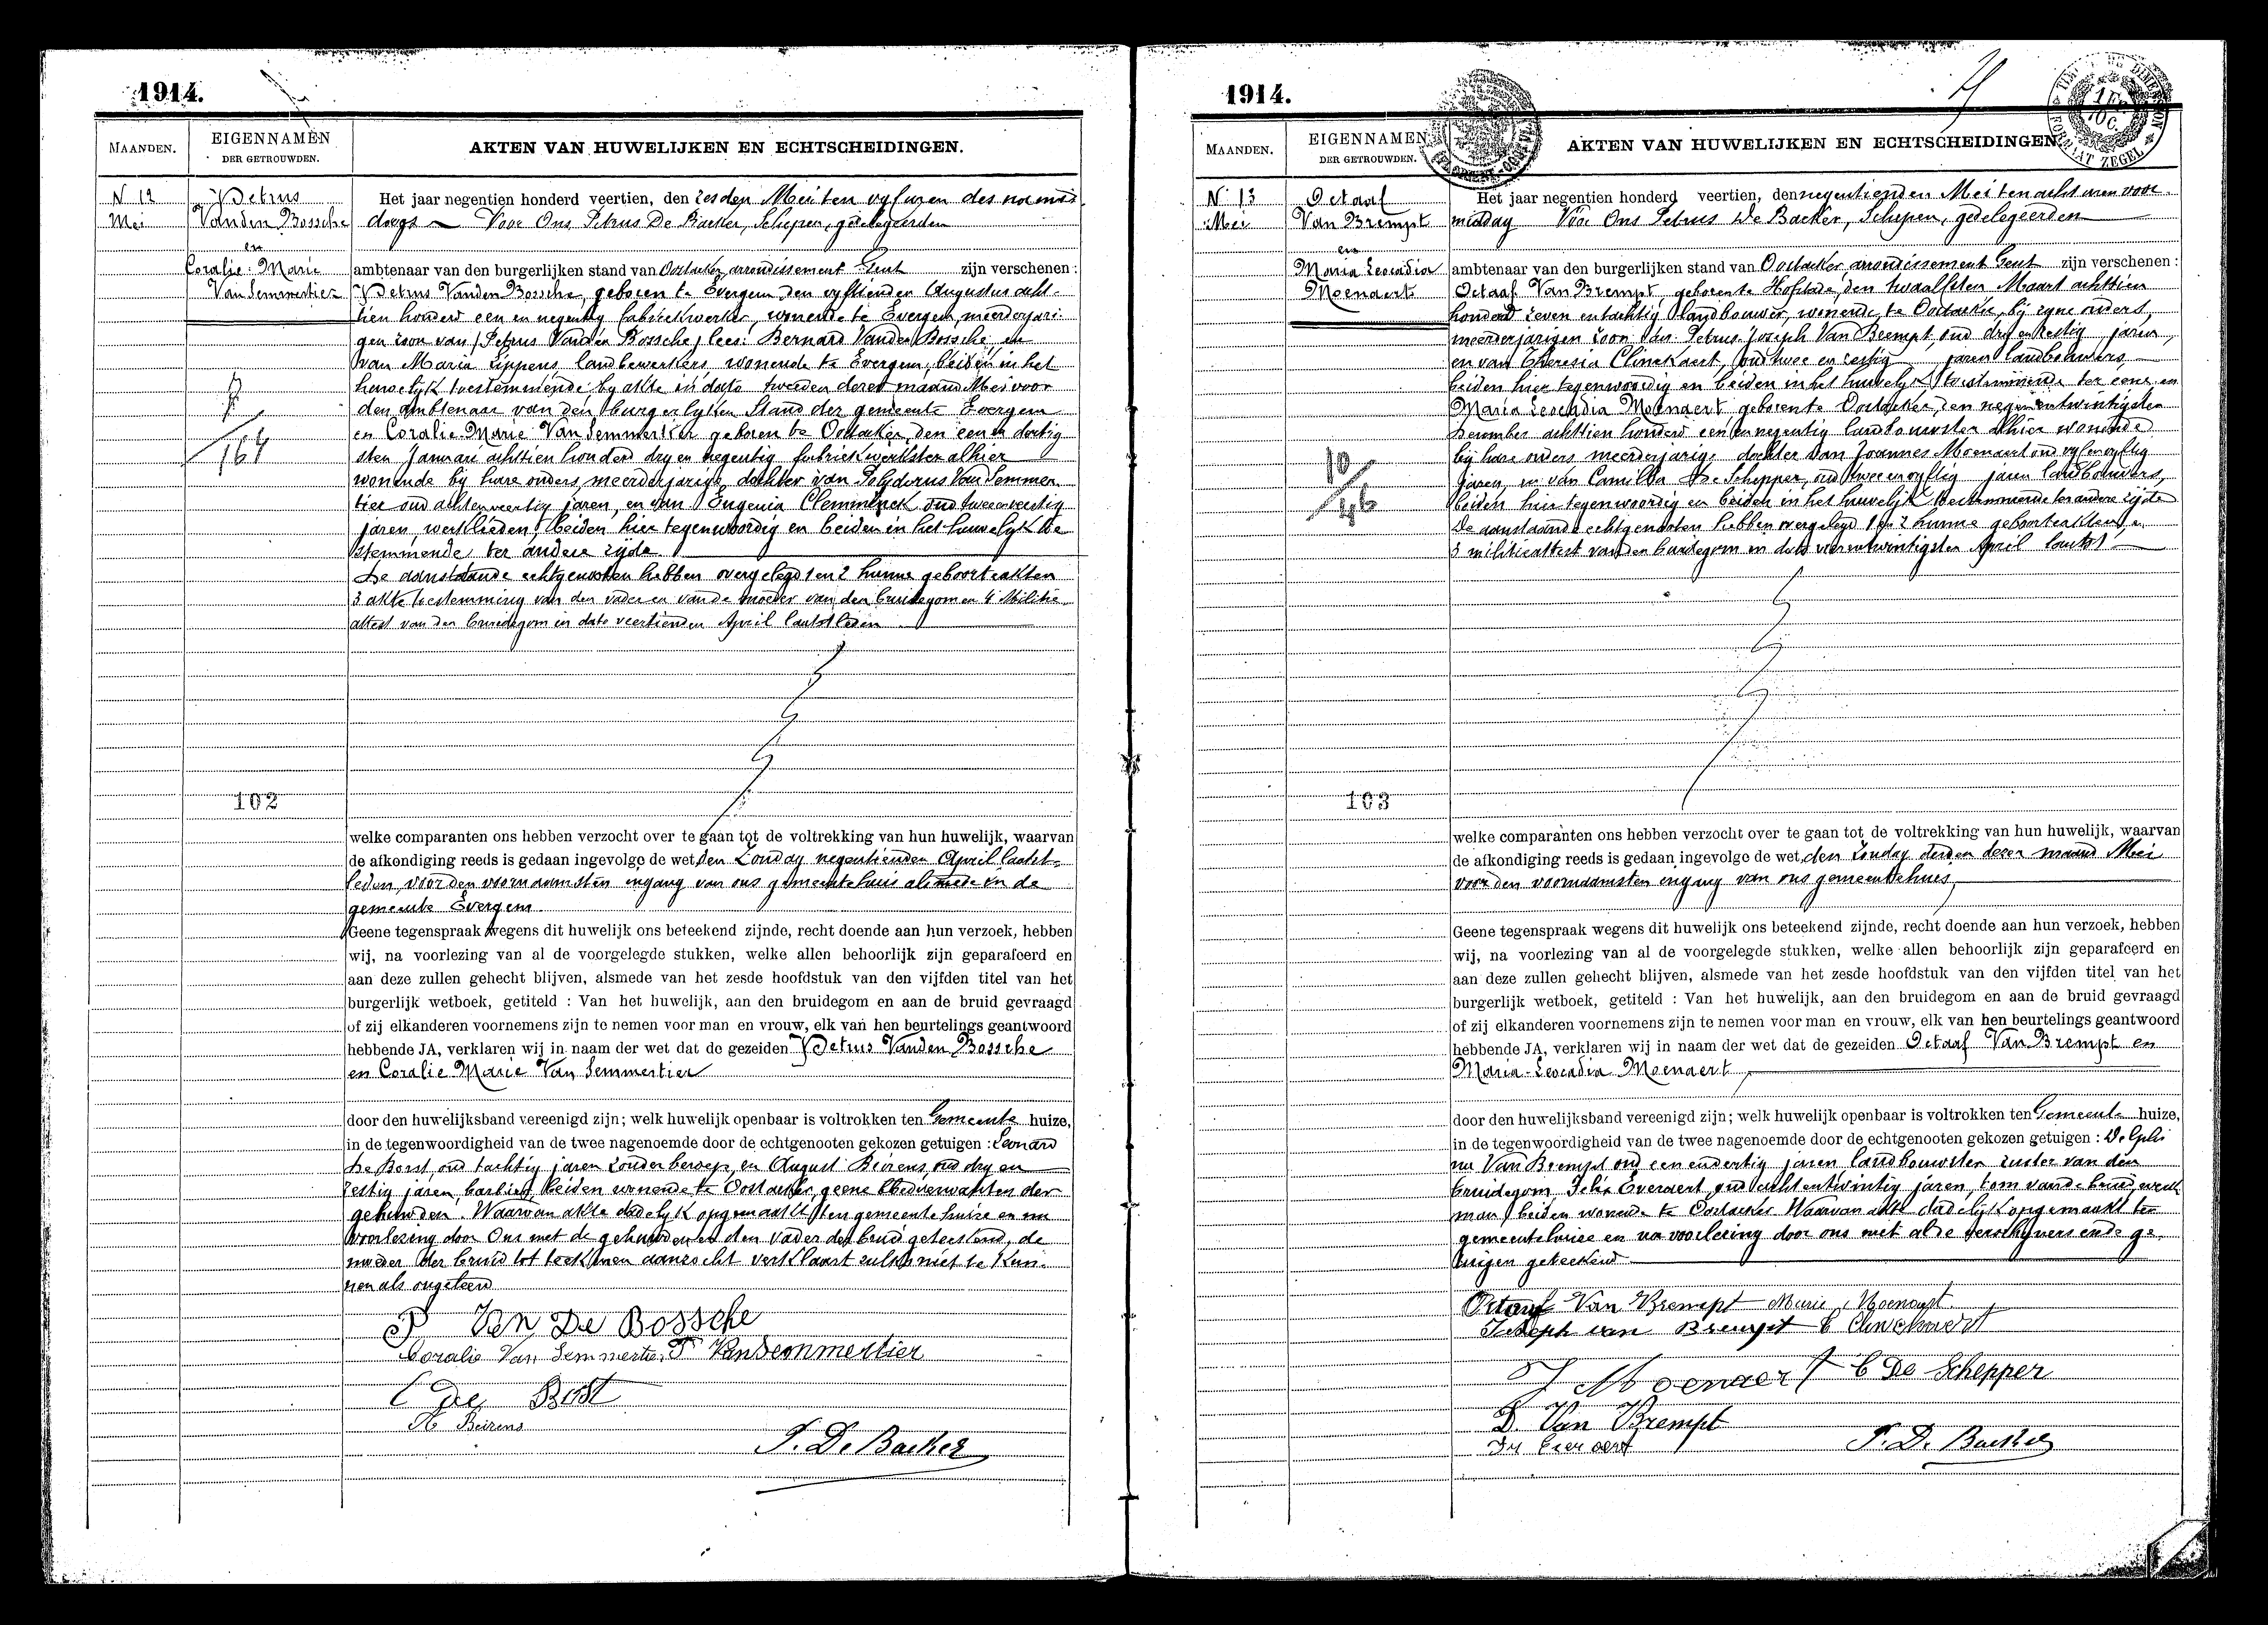 1914.
MAANDEN.
EIGENNAMEN
DER GETROUWDEN.
AKTEN VAN HUWELIJKEN EN ECHTSCHEIDINGEN.
N 12
Mei
Petrus
Vanden Bossche
en
Coralie-Marie
Van Semmertier
7/164
102
Het jaar negentien honderd veertien, den zesden Mei ten vyf uren des namid-
dags Voor Ons Petrus De Backer, Schepen, gedelegeerden
ambtenaar van den burgerlijken stand van Oostacker, arrondissement Gent zijn verschenen :
Petrus Vanden Bossche, geboren te Evergem den vyftienden Augustus acht-
tien honderd een en negentig fabriekwerker, wonende te Evergem, meerderjari-
gen zoon van (Petrus Vanden Bossche) lees: Bernard Vanden Bossche, en
van Maria Lippens, landbewerkers, wonende te Evergem, beiden in het
huwelyk toestemmende by akte in dato tweeden dezer maand Mei voor
den ambtenaar van den burgerlyken Stand der gemeente Evergem
en Coralie-Marie Van Semmertier geboren te Oostacker, den een en dertig
sten Januari achttien honderd dry en negentig fabriekwerkster alhier
wonende by hare ouders, meerderjarige dochter van Polydorus Van Semmer-
tier oud achtenveertig jaren, en van Eugenia Clemminck oud tweeenveertig
jaren, werklieden, beiden hier tegenwoordig en beiden in het huwelyk toe
stemmende ter andere zyde
De aanstaande echtgenooten hebben overgelegd 1 en 2 hunne geboorteakten
3 akte toestemming van den vader en van de moeder van den bruidegom en 4 Militie
attest van den bruidegom in dato veertienden April laatstleden
welke comparanten ons hebben verzocht over te gaan tot de voltrekking van hun huwelijk, waarvan
de afkondiging reeds is gedaan ingevolge de wet, den Zondag negentienden April laatst-
leden, voor den voornaamsten ingang van ons gemeentehuis alsmede in de
gemeente Evergem
Geene tegenspraak wegens dit huwelijk ons beteekend zijnde, recht doende aan hun verzoek, hebben
wij, na voorlezing van al de voorgelegde stukken, welke allen behoorlijk zijn geparafeerd en
aan deze zullen gehecht blijven, alsmede van het zesde hoofdstuk van den vijfden titel van het
burgerlijk wetboek, getiteld : Van het huwelijk, aan den bruidegom en aan de bruid gevraagd
of zij elkanderen voornemens zijn te nemen voor man en vrouw, elk van hen beurtelings geantwoord
hebbende JA, verklaren wij in naam der wet dat de gezeiden Petrus Vanden Bossche
en Coralie Marie Van Semmertier
door den huwelijksband vereenigd zijn; welk huwelijk openbaar is voltrokken ten Gemeente huize,
in de tegenwoordigheid van de twee nagenoemde door de echtgenooten gekozen getuigen : Leonard
De Borst, oud tachtig jaren zonder beroep, en August Beirens, oud dry en
zestig jaren, barbier, beiden wonende te Oostacker, geene bloedverwanten der
gehuwden. Waarvan akte dadelyk opgemaakt ten gemeentehuize en na
voorlezing door Ons met de gehuwden en den vader der bruid geteekend, de
moeder der bruid tot teekenen aanzocht verklaart zulks niet te kun-
nen als ongeleerd
P Van De Bossche
Coralie Van Semmertier P Vansemmertier
De Borst
Beirens
P. De Backer
1914.
MAANDEN.
EIGENNAMEN
DER GETROUWDEN.
AKTEN VAN HUWELIJKEN EN ECHTSCHEIDINGEN.
N 13
Mei
Octaaf
Van Brempt
en
Maria Leocadia
Moenaert
10/46
103
Het jaar negentien honderd veertien, den negentienden Mei ten acht uren voor-
middag Voor Ons Petrus De Backer, Schepen, gedelegeerden
ambtenaar van den burgerlijken stand van Oostacker, arrondissement Gent zijn verschenen :
Octaaf Van Brempt, geboren te Hofstade, den twaalfsten Maart achttien
honderd zeven en tachtig landbouwer, wonende te Oostacker, bij zyne ouders,
meerderjarigen zoon van Petrus Joseph Van Brempt, oud dry en zestig jaren,
en van Theresia Clinckaert, oud twee en zestig jaren landbouwers,
beiden hier tegenwoordig en beiden in het huwelyk toestemmende ter eene en
Maria Leocadia Moenaert geboren te Oostacker, den negenentwintigsten
December achttien honderd een en negentig landbouwster alhier wonende
bij hare ouders meerderjarige dochter van Joannes Moenaert oud vyfenvyftig
jaren, en van Camilla De Schepper, oud tweeenvyftig jaren landbouwers,
beiden hier tegenwoordig en beiden in het huwelijk toestemmende ter andere zijde
De aanstaande echtgenooten hebben overgelegd 1 en 2 hunne geboorteakten, en
3 militieattest van den bruidegom in dato vierentwintigsten April laatst
welke comparanten ons hebben verzocht over te gaan tot de voltrekking van hun huwelijk, waarvan
de afkondiging reeds is gedaan ingevolge de wet, den Zondag derden dezer maand Mei
voor den voornaamsten ingang van ons gemeentehuis
Geene tegenspraak wegens dit huwelijk ons beteekend zijnde, recht doende aan hun verzoek, hebben
wij, na voorlezing van al de voorgelegde stukken, welke allen behoorlijk zijn geparafeerd en
aan deze zullen gehecht blijven, alsmede van het zesde hoofdstuk van den vijfden titel van het
burgerlijk wetboek, getiteld : Van het huwelijk, aan den bruidegom en aan de bruid gevraagd
of zij elkanderen voornemens zijn te nemen voor man en vrouw, elk van hen beurtelings geantwoord
hebbende JA, verklaren wij in naam der wet dat de gezeiden Octaaf Van Brempt en
Maria-Leocadia Moenaert
door den huwelijksband vereenigd zijn; welk huwelijk openbaar is voltrokken ten Gemeente huize,
in de tegenwoordigheid van de twee nagenoemde door de echtgenooten gekozen getuigen : Delphi
na Van Brempt oud een en dertig jaren landbouwster zuster van den
bruidegom, Felix Everaert, oud achtentwintig jaren, oom van de bruid, werk
man, beiden wonende te Oostacker Waarvan akte dadelijk opgemaakt ten
gemeentehuize en na voorlezing door ons met al de verschijners en de ge-
tuigen geteekend
Octaaf Van Brempt Marie Moenaert
Joseph van Brempt Clinckaert
J Moenaert C De Schepper
D. Van Brempt
Everaert
P. De Backer